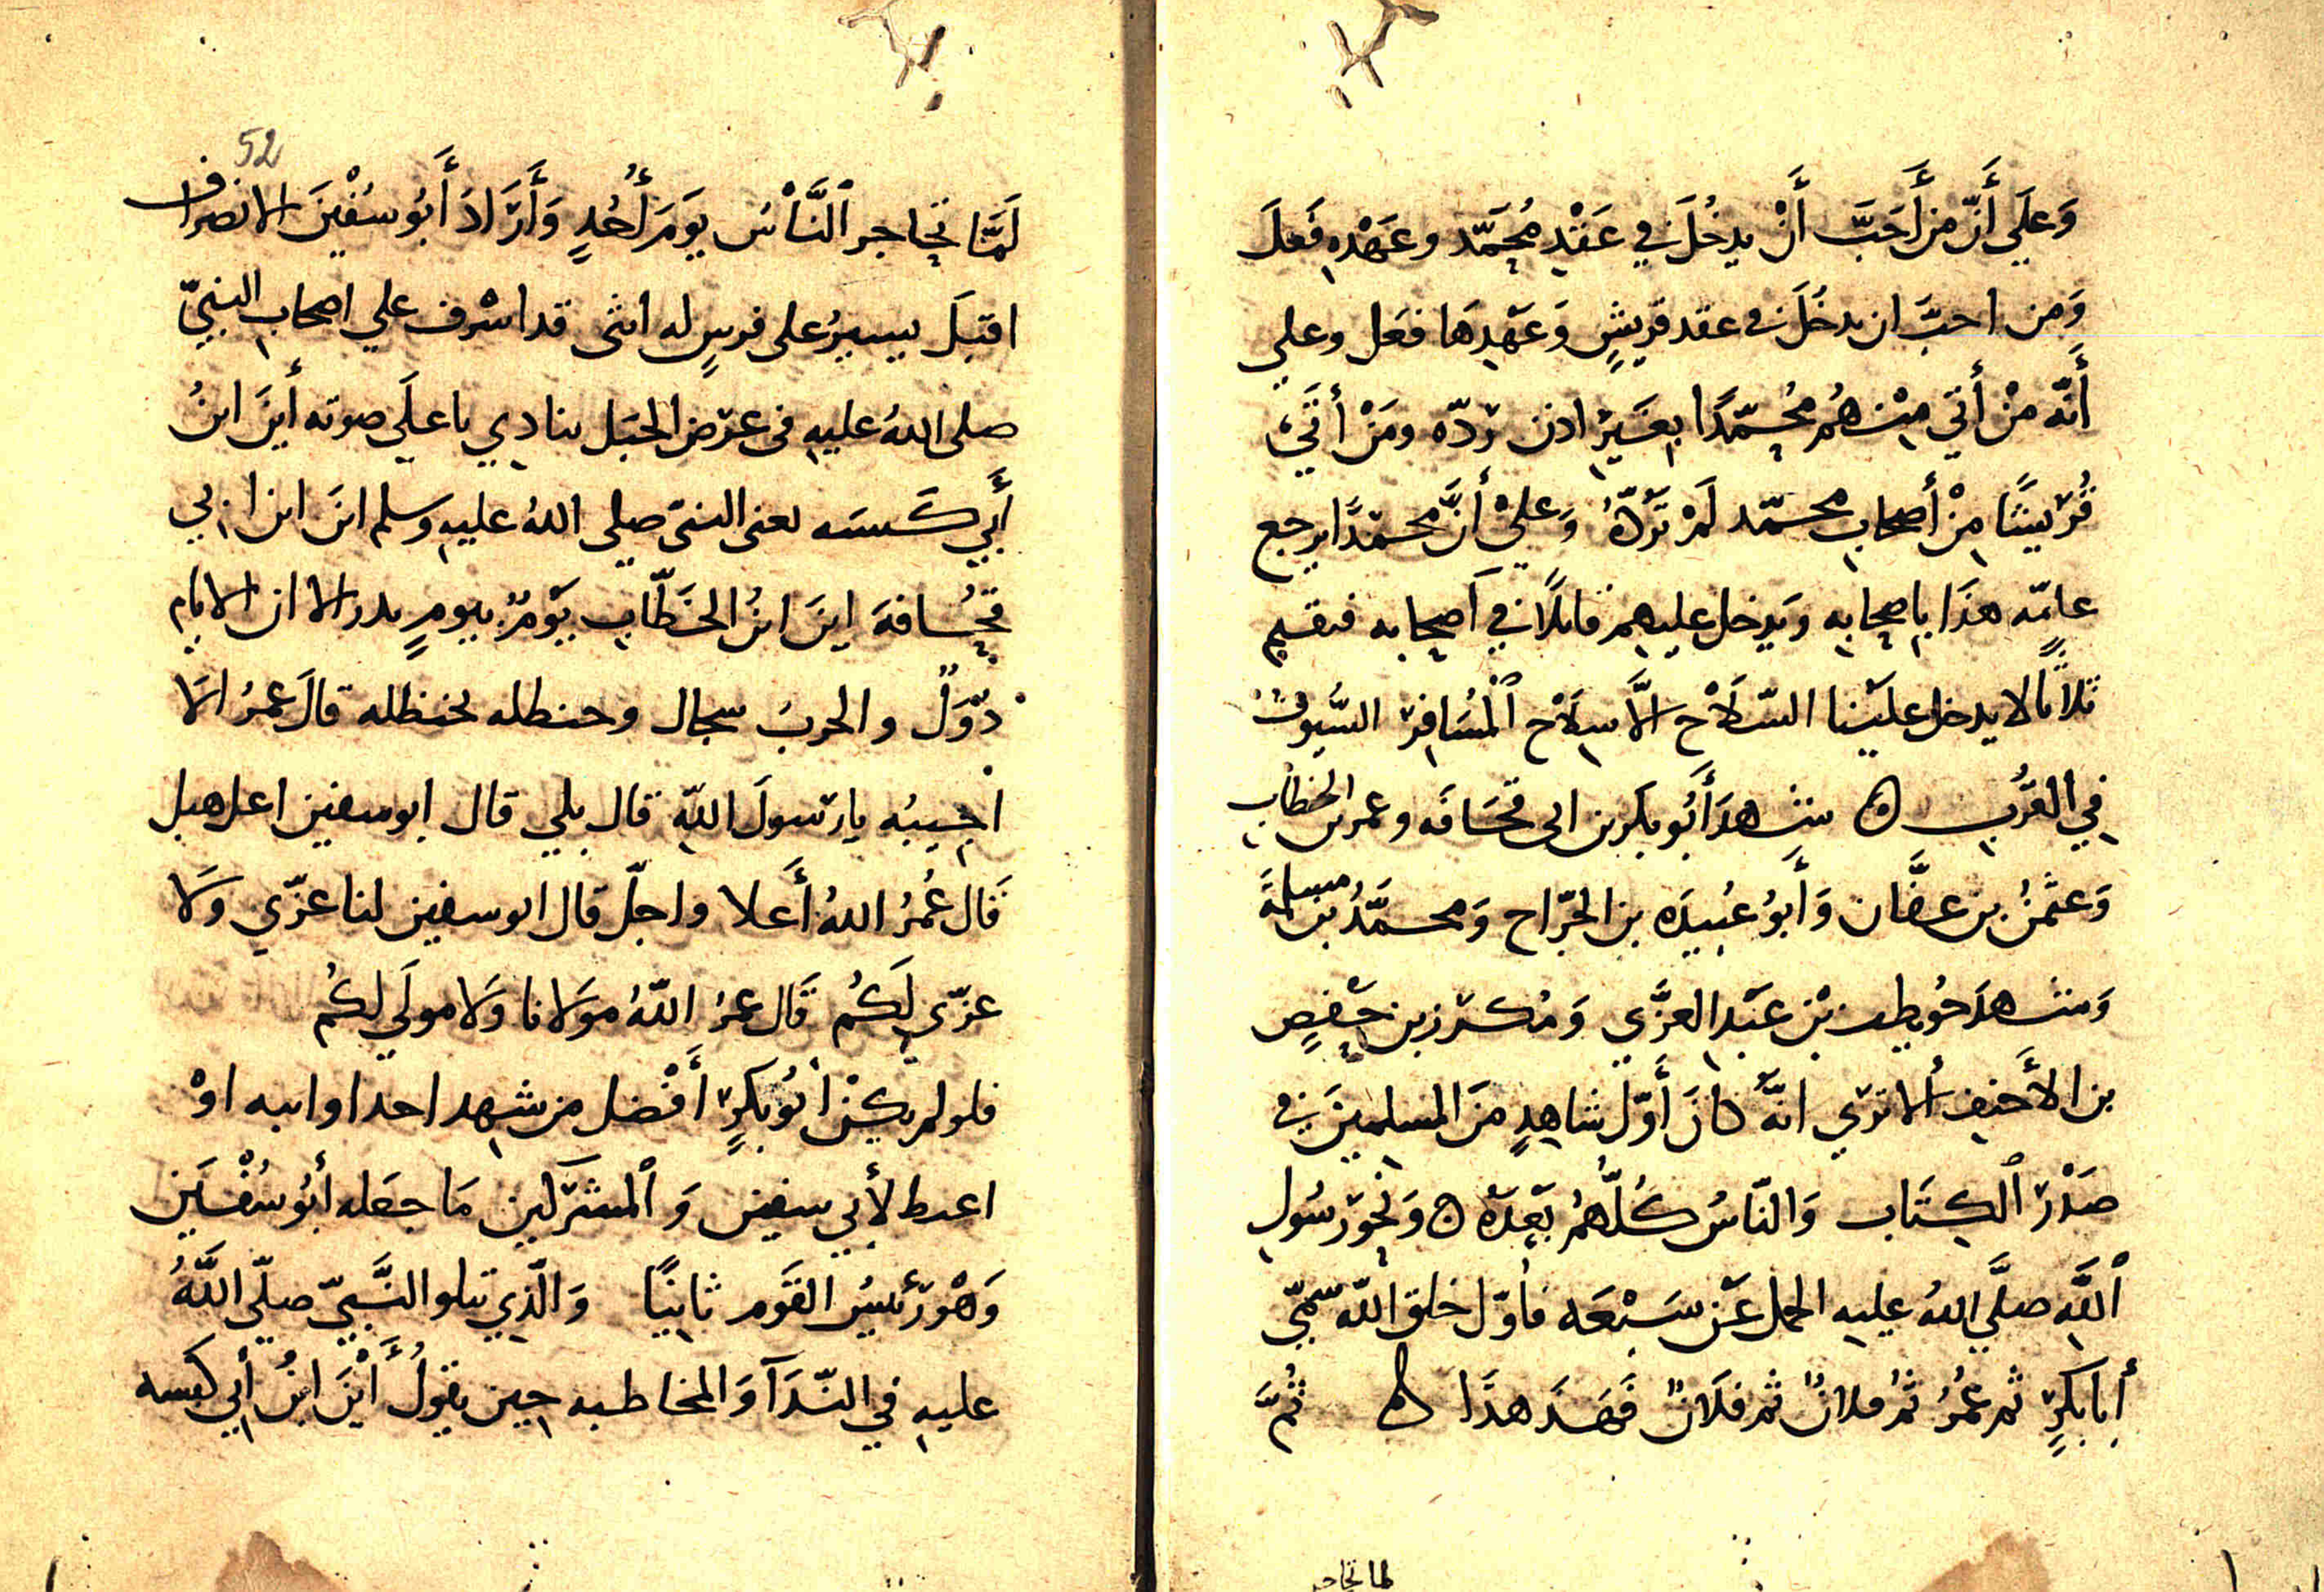 وَعَلَي أَنّ من أَحَبَّ أَنْ يدخُلَ في عَقْدِ مُحَمَّد وعَهْدِه فَعَلَ
وَمن احبَّ ان يدخُلَ في عقد قرَيشٍ وَعَهْدِهَا فعَل وعلي
أَنَّه منْ أتي مِنْهُمْ مُحَمّدًا بِغَيرِ اذن رَدّه ومَنْ أتَي
قُرَيشًا مِنْ أصحاب محمّد لَمْ تَرُدّهُ وَعَلَيْ أنَّ محمّدًا يرجع
عامّه هذَا باصحابه وَيدخل عليهم قابلًا في أصحابه فيقيم
ثلاثًا لا يدخل علَينا السّلَاح الَّا سِلَاح ٱلْمُسَافِر السُّيوف
فِي القُرُب ه شهدَ أَبُو بكر بن ابي قحَافَه وعمر بن الخطاب
وَعثمٰنُ بن عفَّان وَأَبوُ عُبيدَه بن الجرّاح وَمحمَّدُ بن مسلمةَ
وَشهدَ حُويطب بْن عَبْد العزَّي وَمُكرَز بن حَفْصٍ
بن الأَحنف ألا ترَي انّه كانَ أَوّل شاهِدٍ منَ المسلِمينَ في
صَدْر ٱلكِتَاب وَالنّاسُ كُلُّهُمُ بَعْدَهُ ه وَنحَرَ رسُول
ٱللَّه صلَّي اللهُ عليه الجمل عَن سَبْعَه فاوّل خلق اللّه سمّي
أَبا بكرٍ ثم عمُرُ ثمُ فلانٌ ثم فلَانٌ فَهَذَ هذَا ه ثُمَّ
لما تحاجر
52
لَمَّا تَحاجر ٱلنَّاسُ يَومَ أُحُدٍ وَأَرَادَ أَبُو سُفْيٰنَ الانصراف
اقبَلَ يسيرُ على فرسٍ له انثى قد اشرف علي اصحاب النبيّ
صلى اللهُ عليه في عرَض الجبَل ينادِي باعلَي صوته أينَ ابنُ
أَبِي كَبشَه يعنى النبىّ صلي اللهُ عليه وسلم اينَ ابن ابي
قحُافةَ اينَ ابنُ الخطّاب يَوْمٌ بيومٍ بدر الا ان الايام
دُوَلٌ والحربَ سجال وحنظله بحنظله قالَ عمرُ الَا
اجيبُه يا رَسولَ اللّه قال بلي قال ابو سفين اعل هبل
قَال عُمرُ اللهُ أَعلا واجلّ قال ابو سفين لنا عزّي وَلَا
عزّي لَكُم قَال عمرُ اللّهُ مَولَانا وَلَا مولَي لكُم
فلو لم يكنْ أبُو بكرٍ أَفْضل من شهد احدا وانبه اوْ
اعبط لأَبِي سفين وَ ٱلمشرَكين مَا جعَله أبُو سُفْيَٰن
وَهْو رَئيسُ القوَم ثانِيًا وَالّذي يتلو النَّبيّ صلّي اللَّهُ
عليه في النّدَآ وَالمخاطبه حِين يقوُلُ أَيْنَ ابنُ أبي كبشه